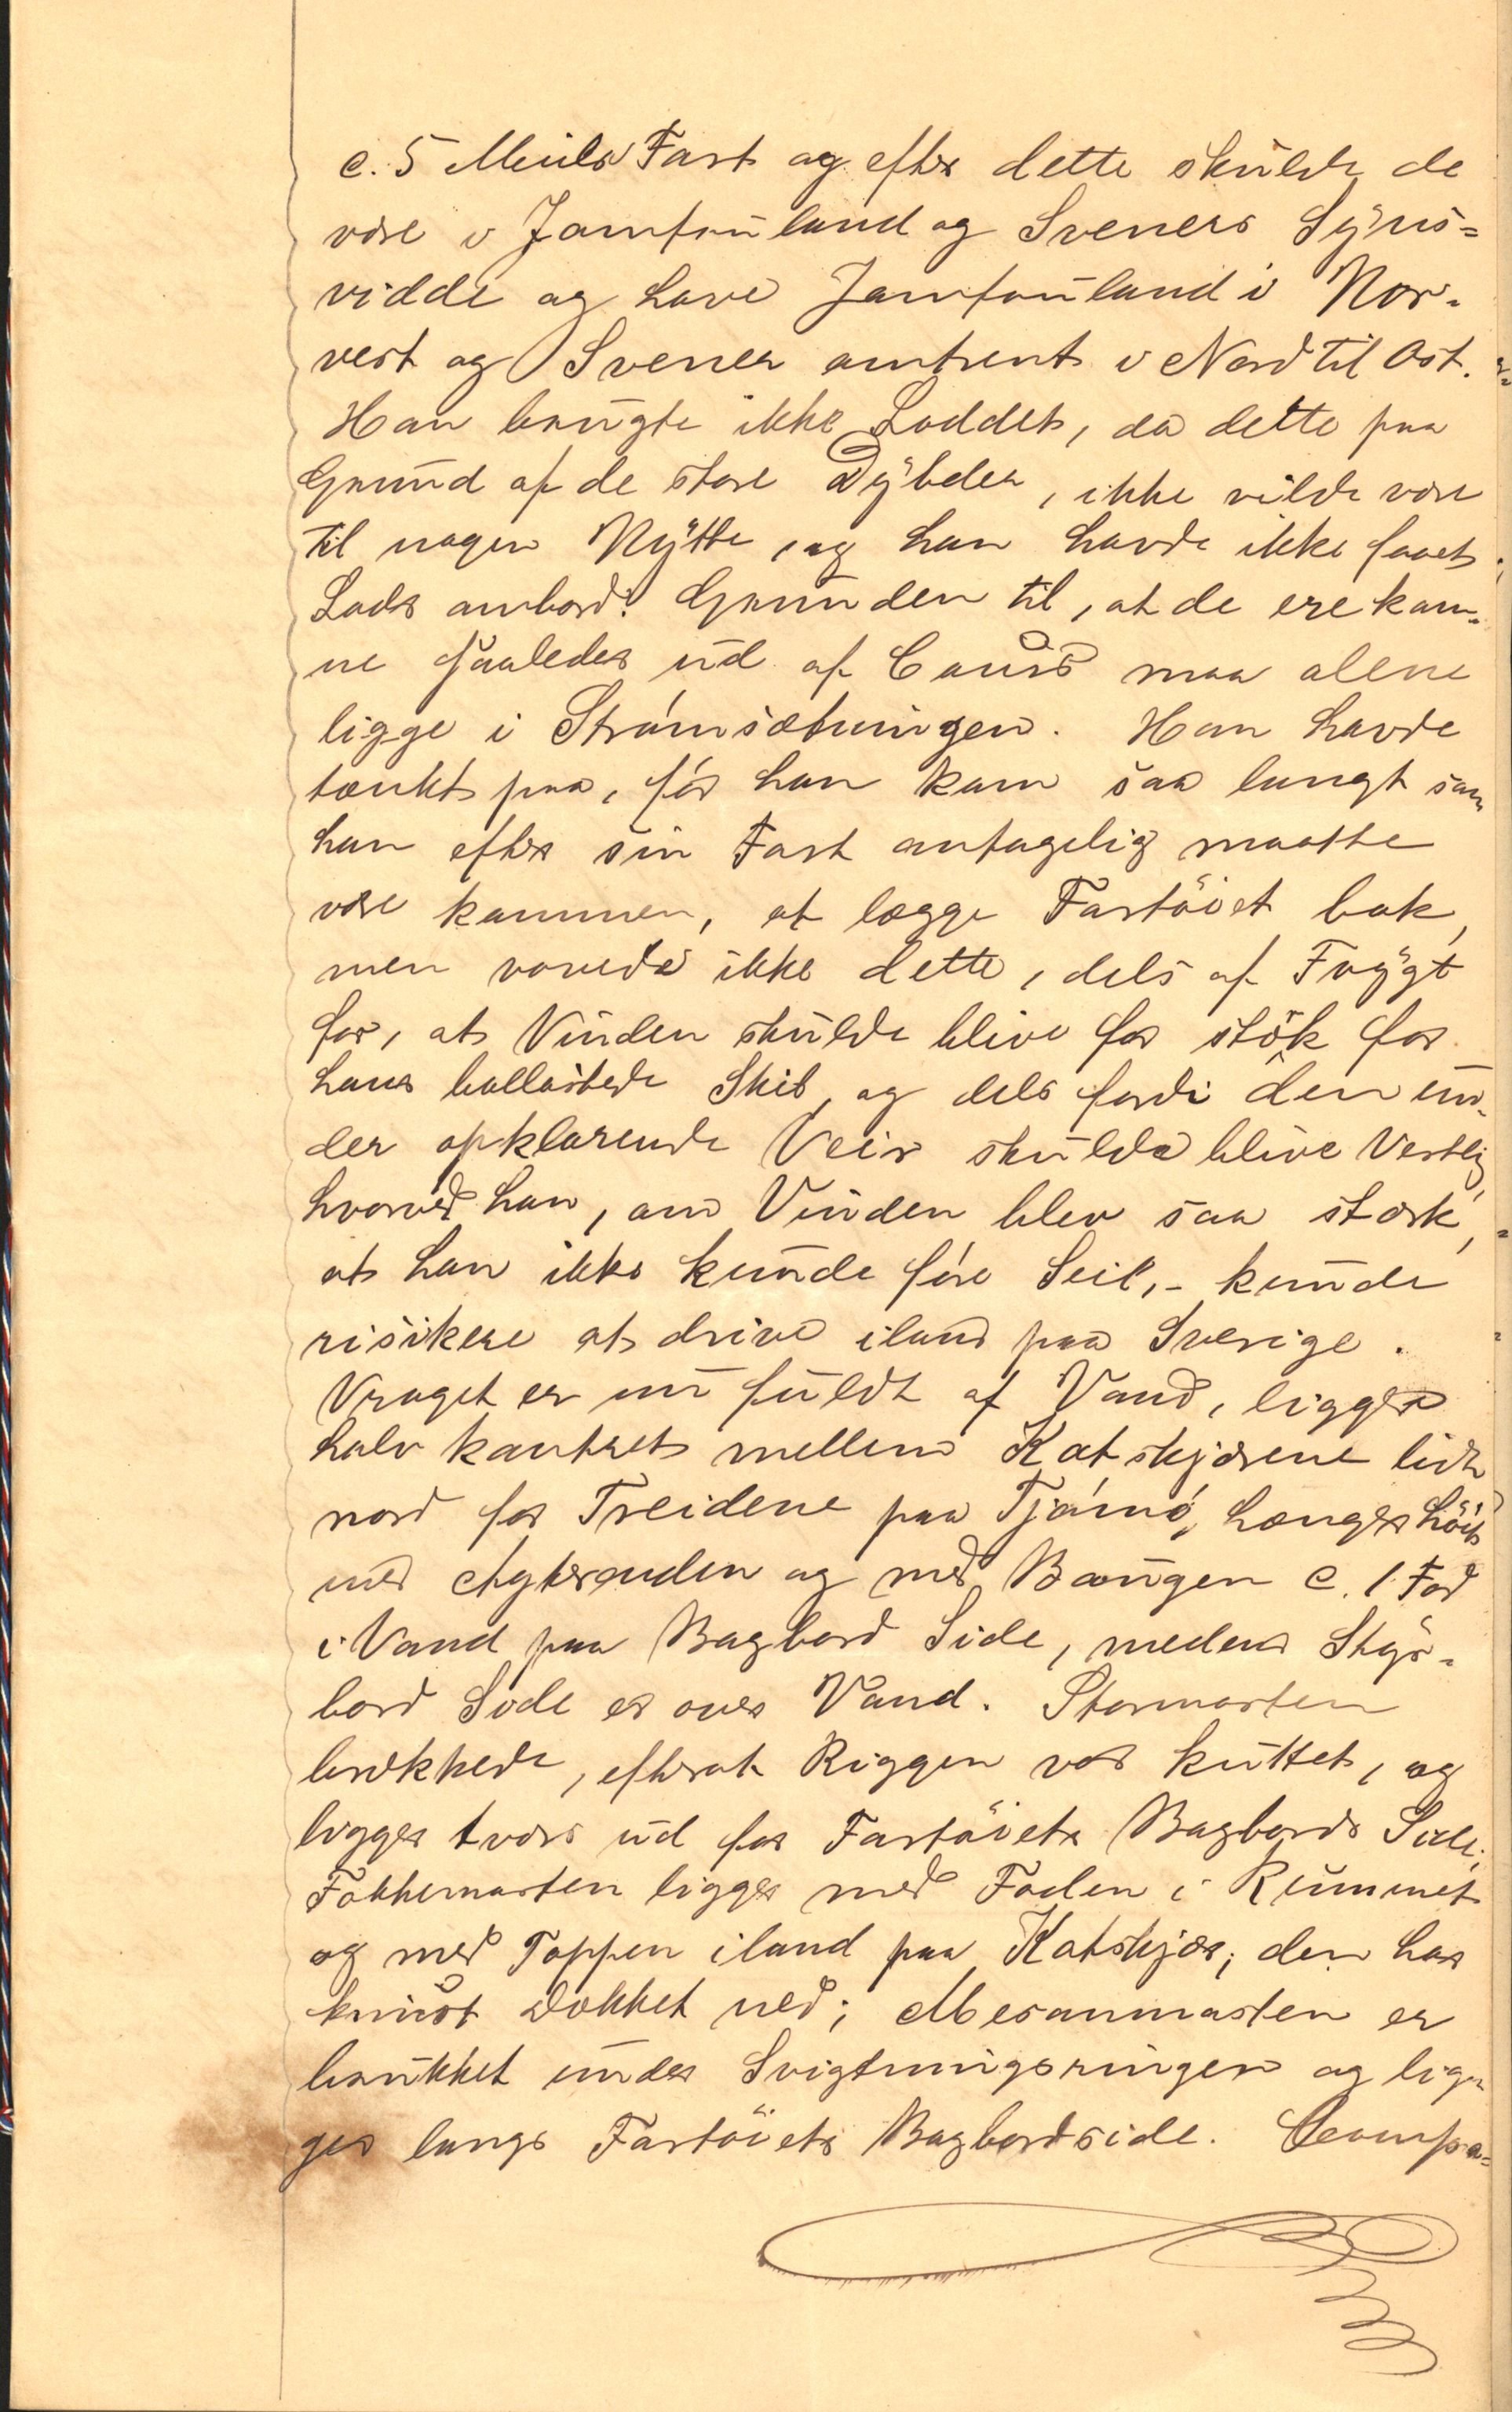 c. 5 Miils Fart og efter dette skulde de
være i Jomfruland og Sveners Syns=
vidde og have Jomfruland i Nor-
vest og Svener omtrent i Nord til Ost.
Han brugte ikke Loddet, da dette paa
Grund af de store Dybder, ikke vilde være
til nogen Nytte, og han havde ikke faaet
Lods ombord. Grunden til, at de ere kom-
ne saaledes ud af Cours maa alene
ligge i Strømsætningen. Han havde
tænkt paa, før han kom saa langt som
han efter sin Fart antagelig maatte
være kommen, at lægge Fartöiet bak,
men vovede ikke dette, dels af Frygt
for, at Vinden skulde blive for stök for
hans ballastede Skib, og dels fordi den un-
der opklarende Veir skulde blive Vestlig,
hvorved han, om Vinden blev saa stærk,
at han ikke kunde føre Seil, - kunde
risikere at drive iland paa Sverige.
Vraget er nu fuldt af Vand, ligger
halv kantret mellem Katskjærene lidt
nord for Treidene paa Tjømø, hænger höit
med Agterenden og med Bougen c. 1 Fod
i Vand paa Bagbord Side, medens Styr-
bord Side er over Vand. Stormasten
brækkede, efterat Riggen var kuttet, og
ligger tværs ud for Fartöiets Bagbords Side;
Fokkemasten ligger med Foden i Rummet
og med Toppen iland paa Katskjær; den har
knust Dækket ned; Mesanmasten er
brukket under Svigtningsringen og lig-
ger langs Fartöiets Bagbordside. Compa=